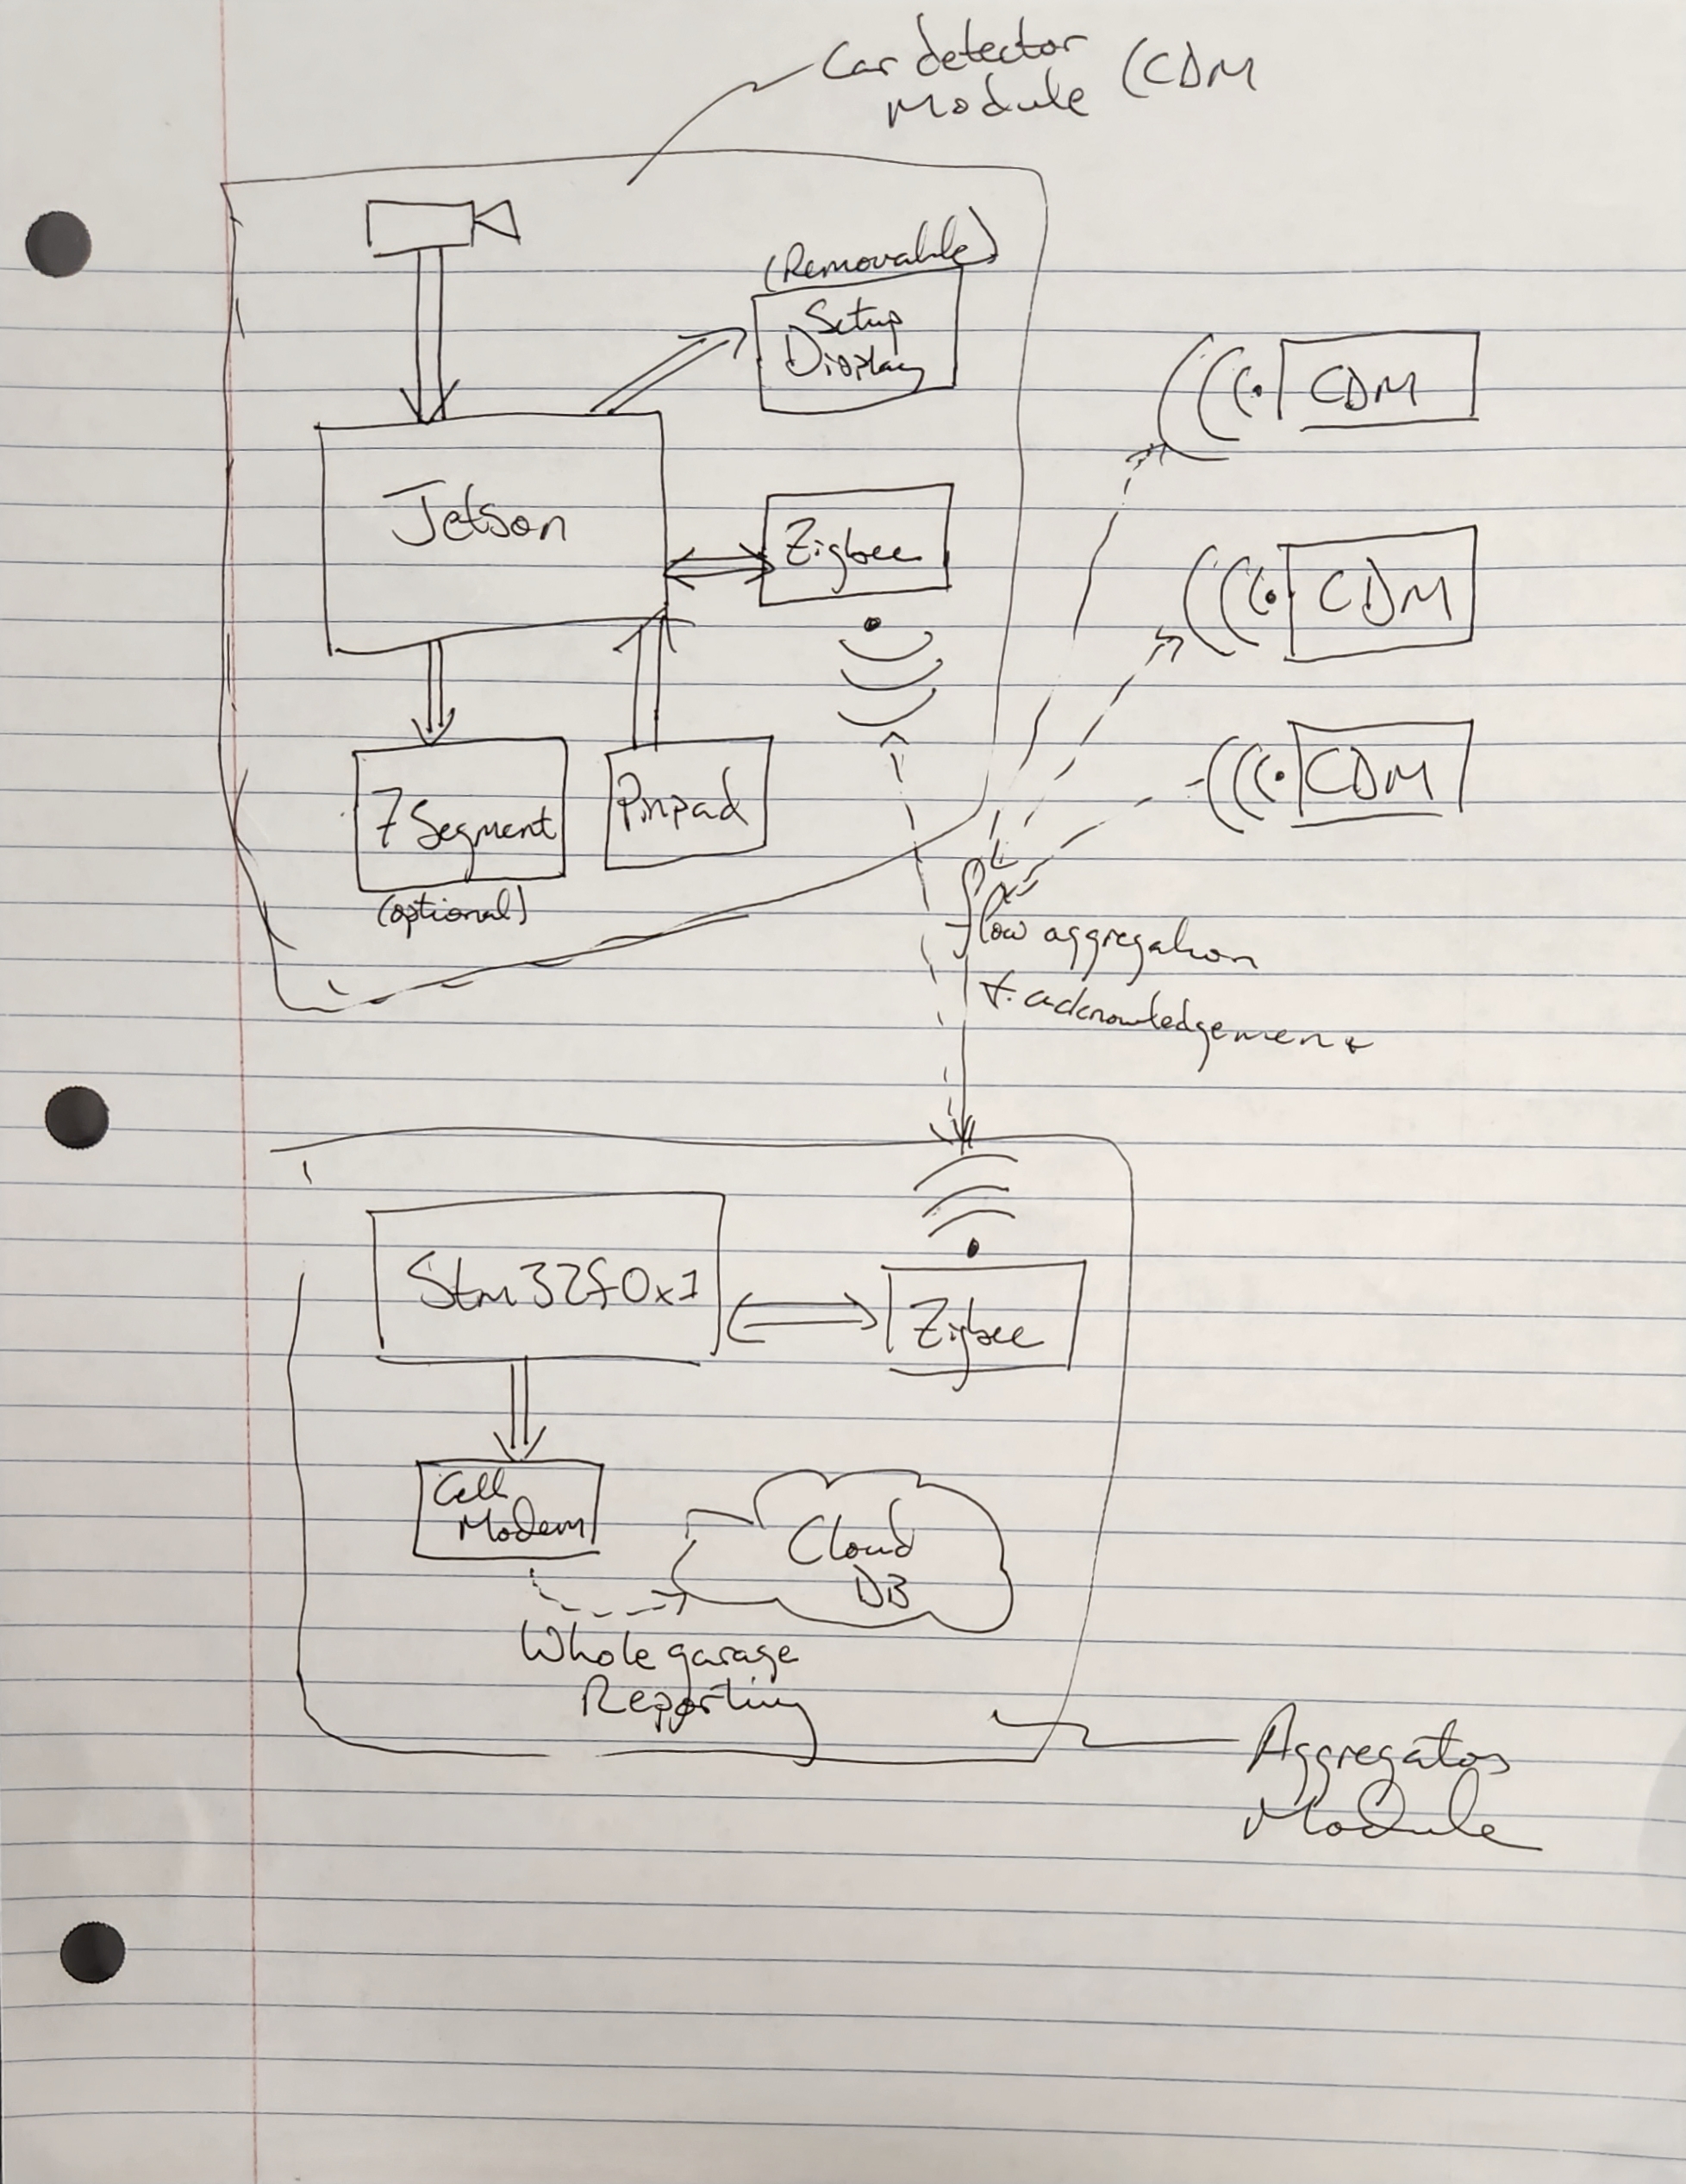 Car detector
Module (CDM
(Removable)
Setup
Display
Jetson
Zigbee
7 Segment
(optional)
Pinpad
CDM
CDM
CDM
flow aggregation
+ acknowledgement
Stm32f0x1
Zigbee
Cell
Modem
Cloud
DB
Whole garage
Reporting
Aggregator
Module